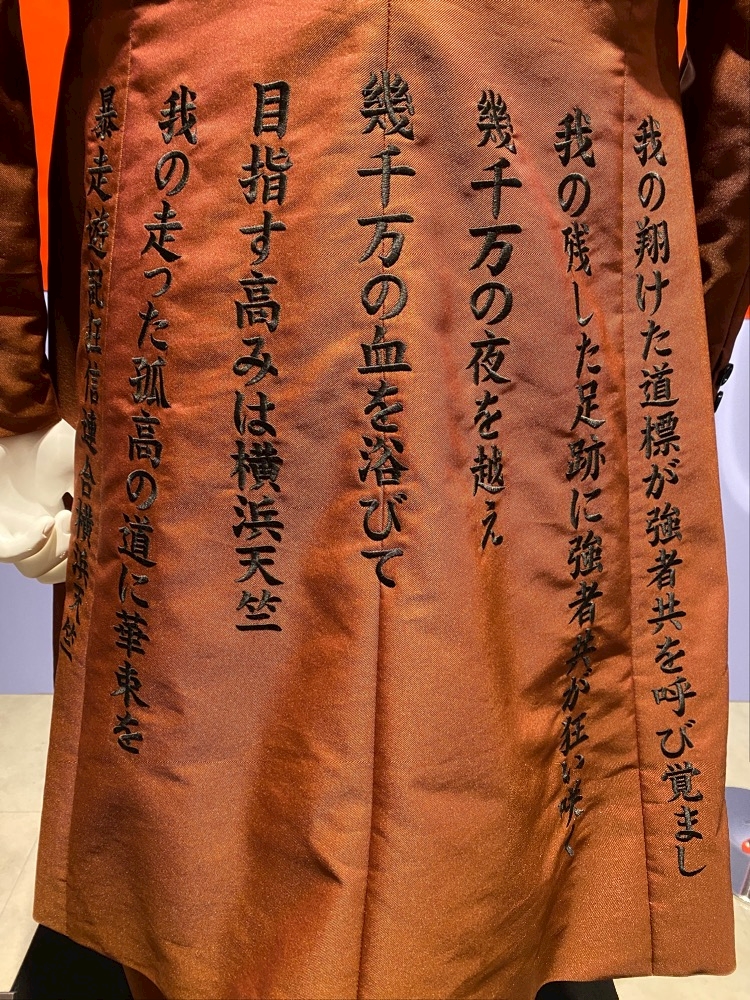 我の翔けた道標が強者共を呼び覚まし
我の残した足跡に強者共が狂い咲く
幾千万の夜を越え
幾千万の血を浴びて
目指す高みは横浜天竺
我の走った孤高の道に華束を
暴走遊誑狂信連合横浜天竺